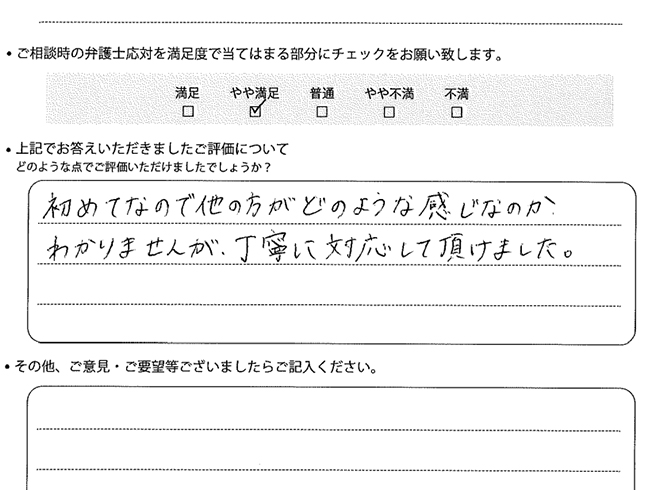 ・ご相談時の弁護士応対を満足度で当てはまる部分にチェックをお願い致します。
満足 やや満足 普通 やや不満 不満
□ ☑ □ □ □
・上記でお答えいただきましたご評価について
どのような点でご評価いただけましたでしょうか？
初めてなので他の方がどのような感じなのか
わかりませんが、丁寧に対応して頂けました。
・その他、ご意見・ご要望等ございましたらご記入ください。